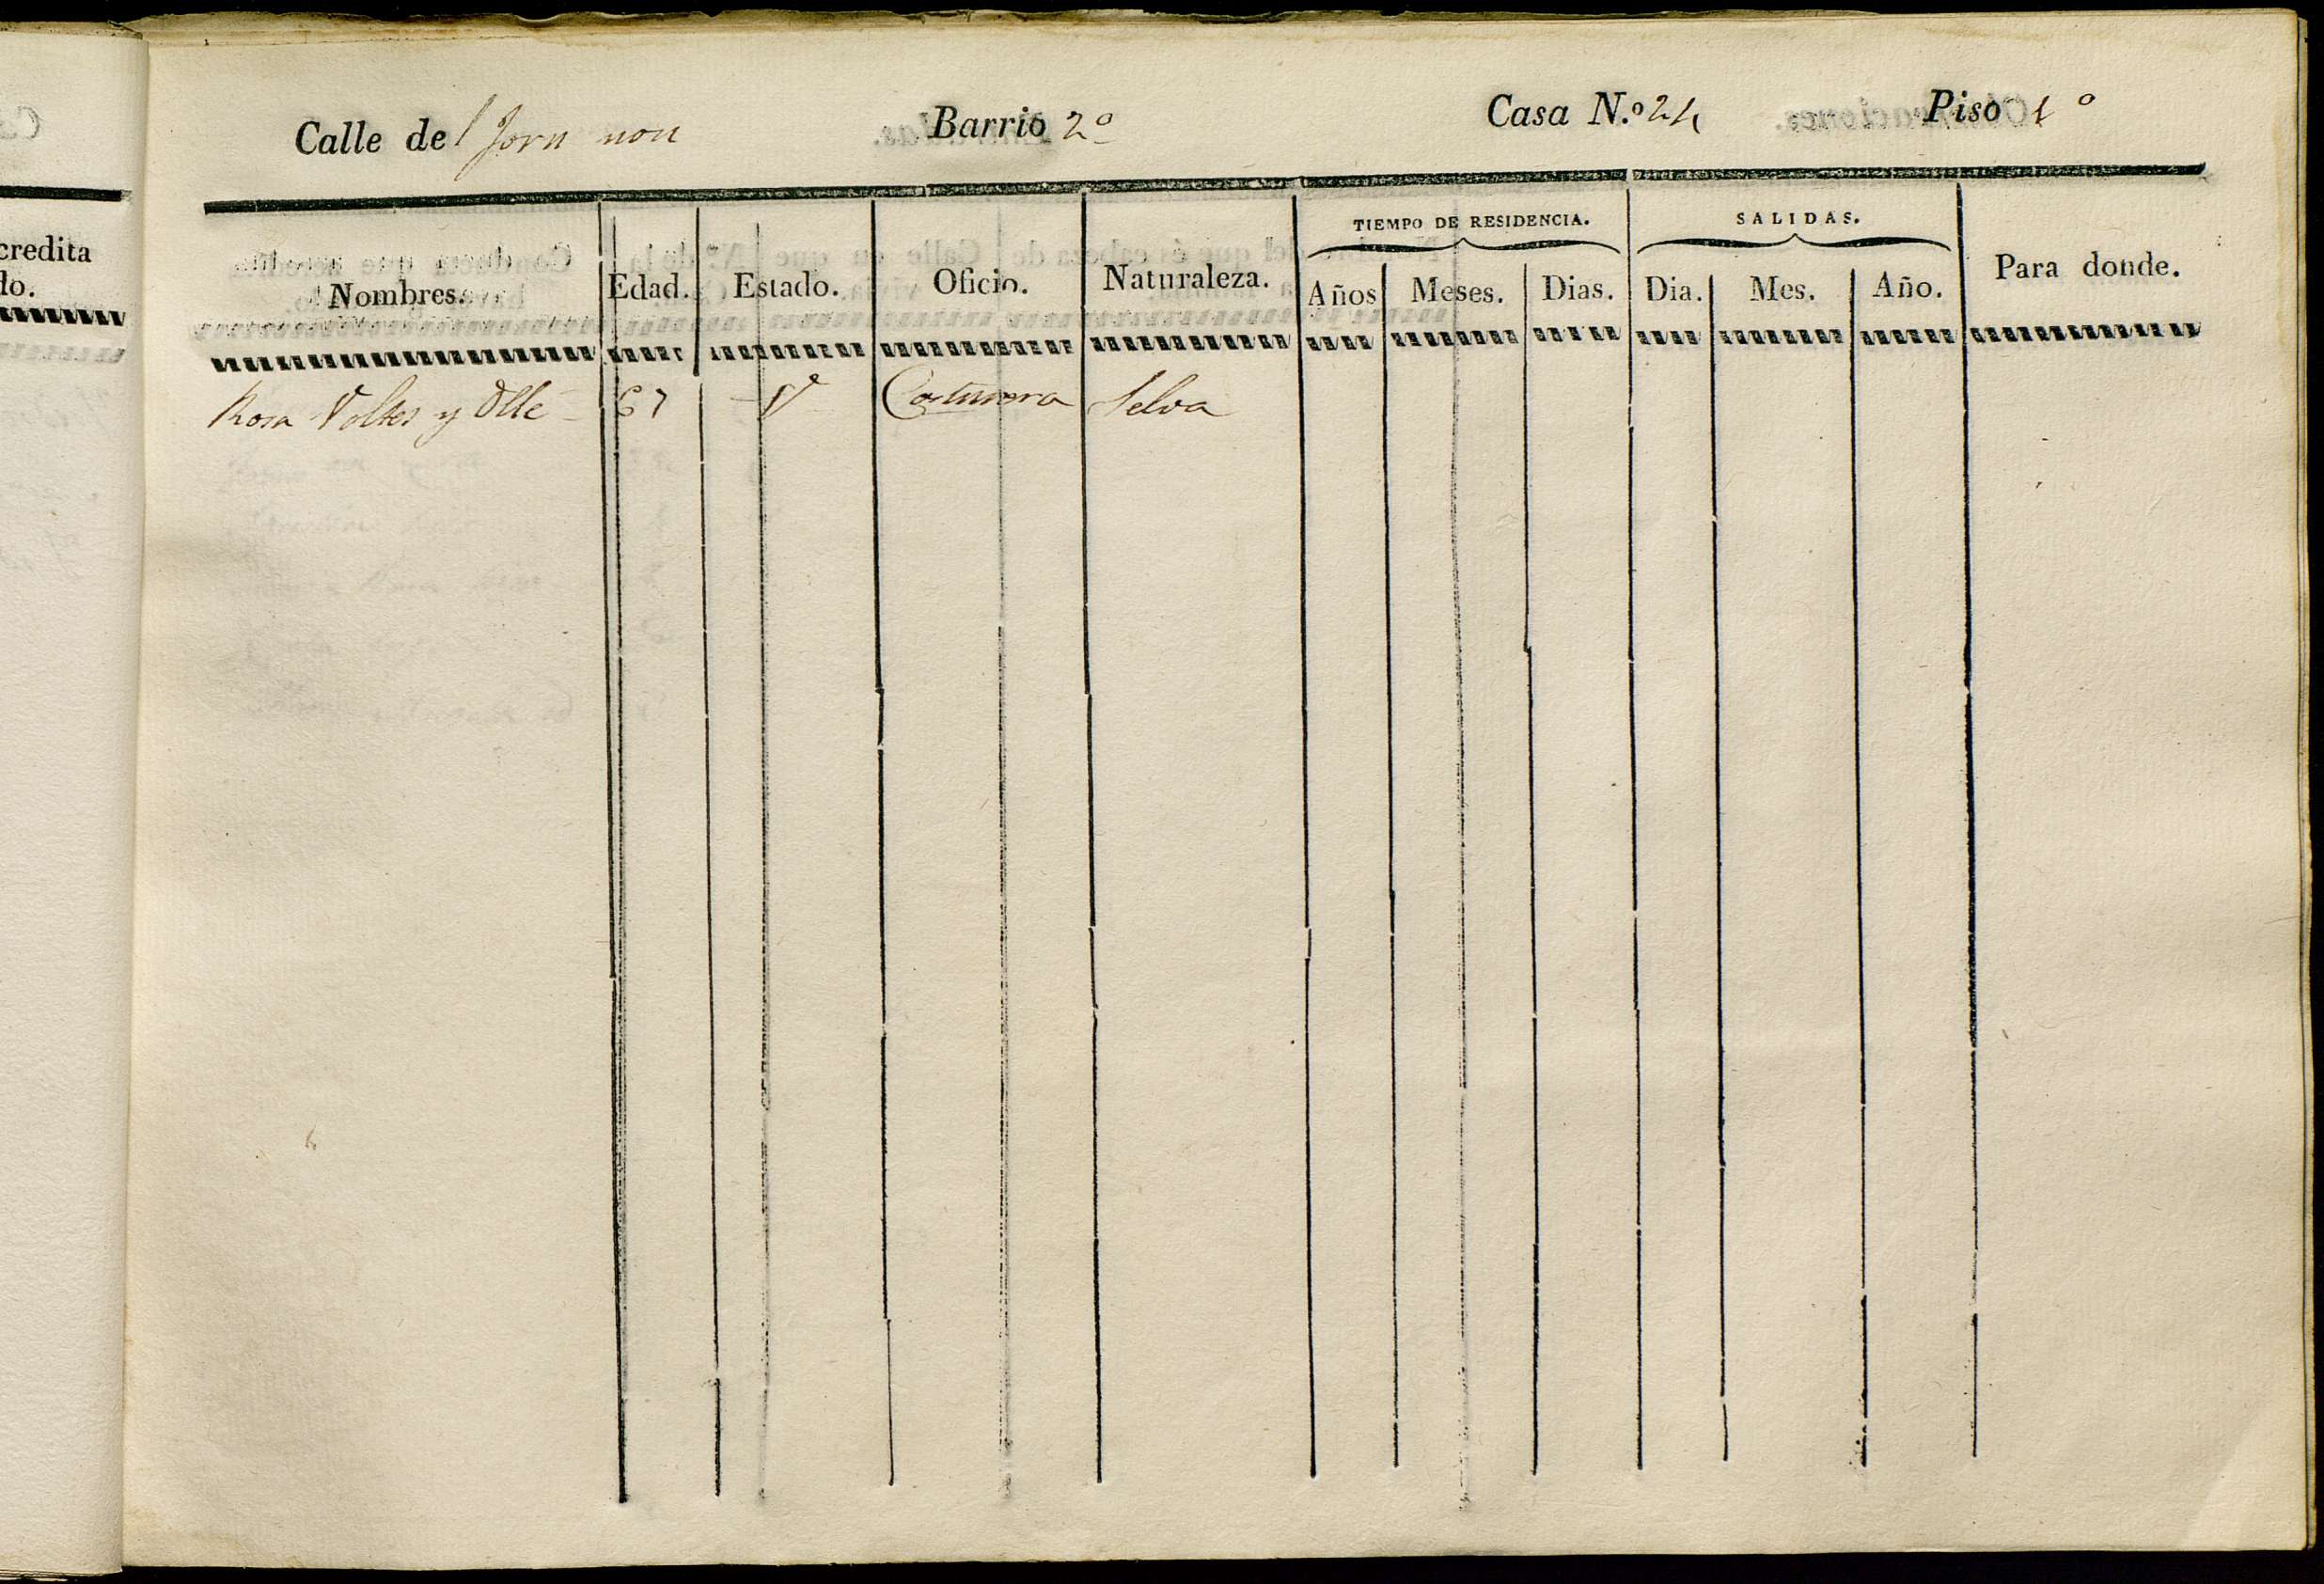 credita
do.
Calle del forn nou Barrio 2º Casa N.º 21 Piso 1º
TIEMPO DE RESIDENCIA. SALIDAS.
Nombres. Edad. Estado. Oficio. Naturaleza. Años Meses. Dias. Dia. Mes. Año. Para donde.
Rosa Voltes y Ollé 67 V Costurera Selva